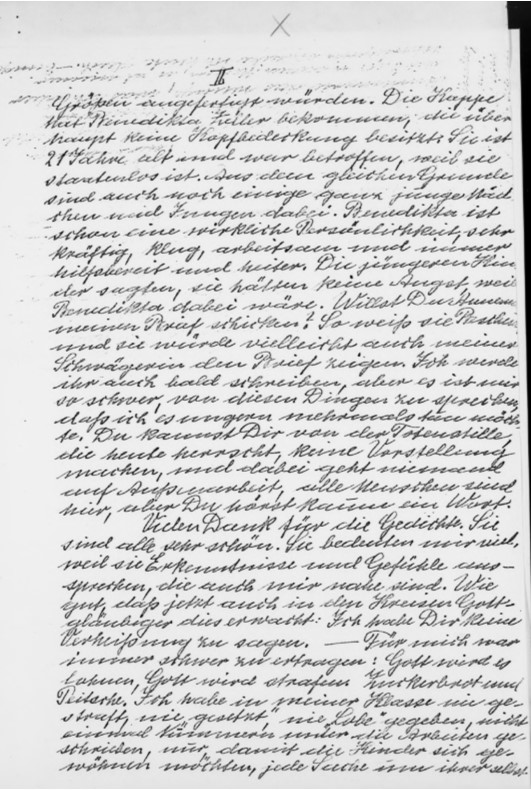 II
Größen angefertigt würden. Die Kappe
hat Benedikta Zeiler bekommen, die über
haupt keine Kopfbedeckung besitzt. Sie ist
21 Jahre alt und war betroffen, weil sie
staatenlos ist. Aus dem gleichen Grunde
sind auch noch einige ganz junge Mäd
chen und Jungen dabei. Benedikta ist
schon eine wirkliche Persönlichkeit, sehr
kräftig, klug, arbeitsam und immer
hilfsbereit und heiter. Die jüngeren Kin
der sagten, sie hätten keine Angst, weil
Benedikta dabei wäre. Willst Du
meinen Brief schicken? So weiß sie Bescheid
und sie würde vielleicht auch meiner
Schwägerin den Brief zeigen. Ich werde
ihr auch bald schreiben, aber es ist mir
so schwer, von diesen Dingen zu sprechen,
daß ich es ungern mehrmals tun möch
te. Du kannst Dir von der Totenstille,
die heute herrscht, keine Vorstellung
machen, und dabei geht niemand
auf Außenarbeit, alle Menschen sind
hier, aber Du hörst kaum ein Wort.
Vielen Dank für die Gedichte. Sie
sind alle sehr schön. Sie bedeuten mir viel,
weil sie Erkenntnisse und Gefühle aus-
sprechen, die auch mir nahe sind. Wie
gut, daß jetzt auch in den Kreisen Gott-
gläubiger dies erwacht: Ich habe Dir keine
Verheißung zu sagen. — Für mich war
immer schwer zu ertragen: Gott wird es
lohnen, Gott wird strafen. Zuckerbrot und
Peitsche. Ich habe in meiner Klasse nie ge-
straft, nie gesetzt, nie „Lobe" gegeben, nicht
einmal Nummern unter die Arbeiten ge-
schrieben, nur damit die Kinder sich ge-
wöhnen möchten, jede Sache um ihrer selbst